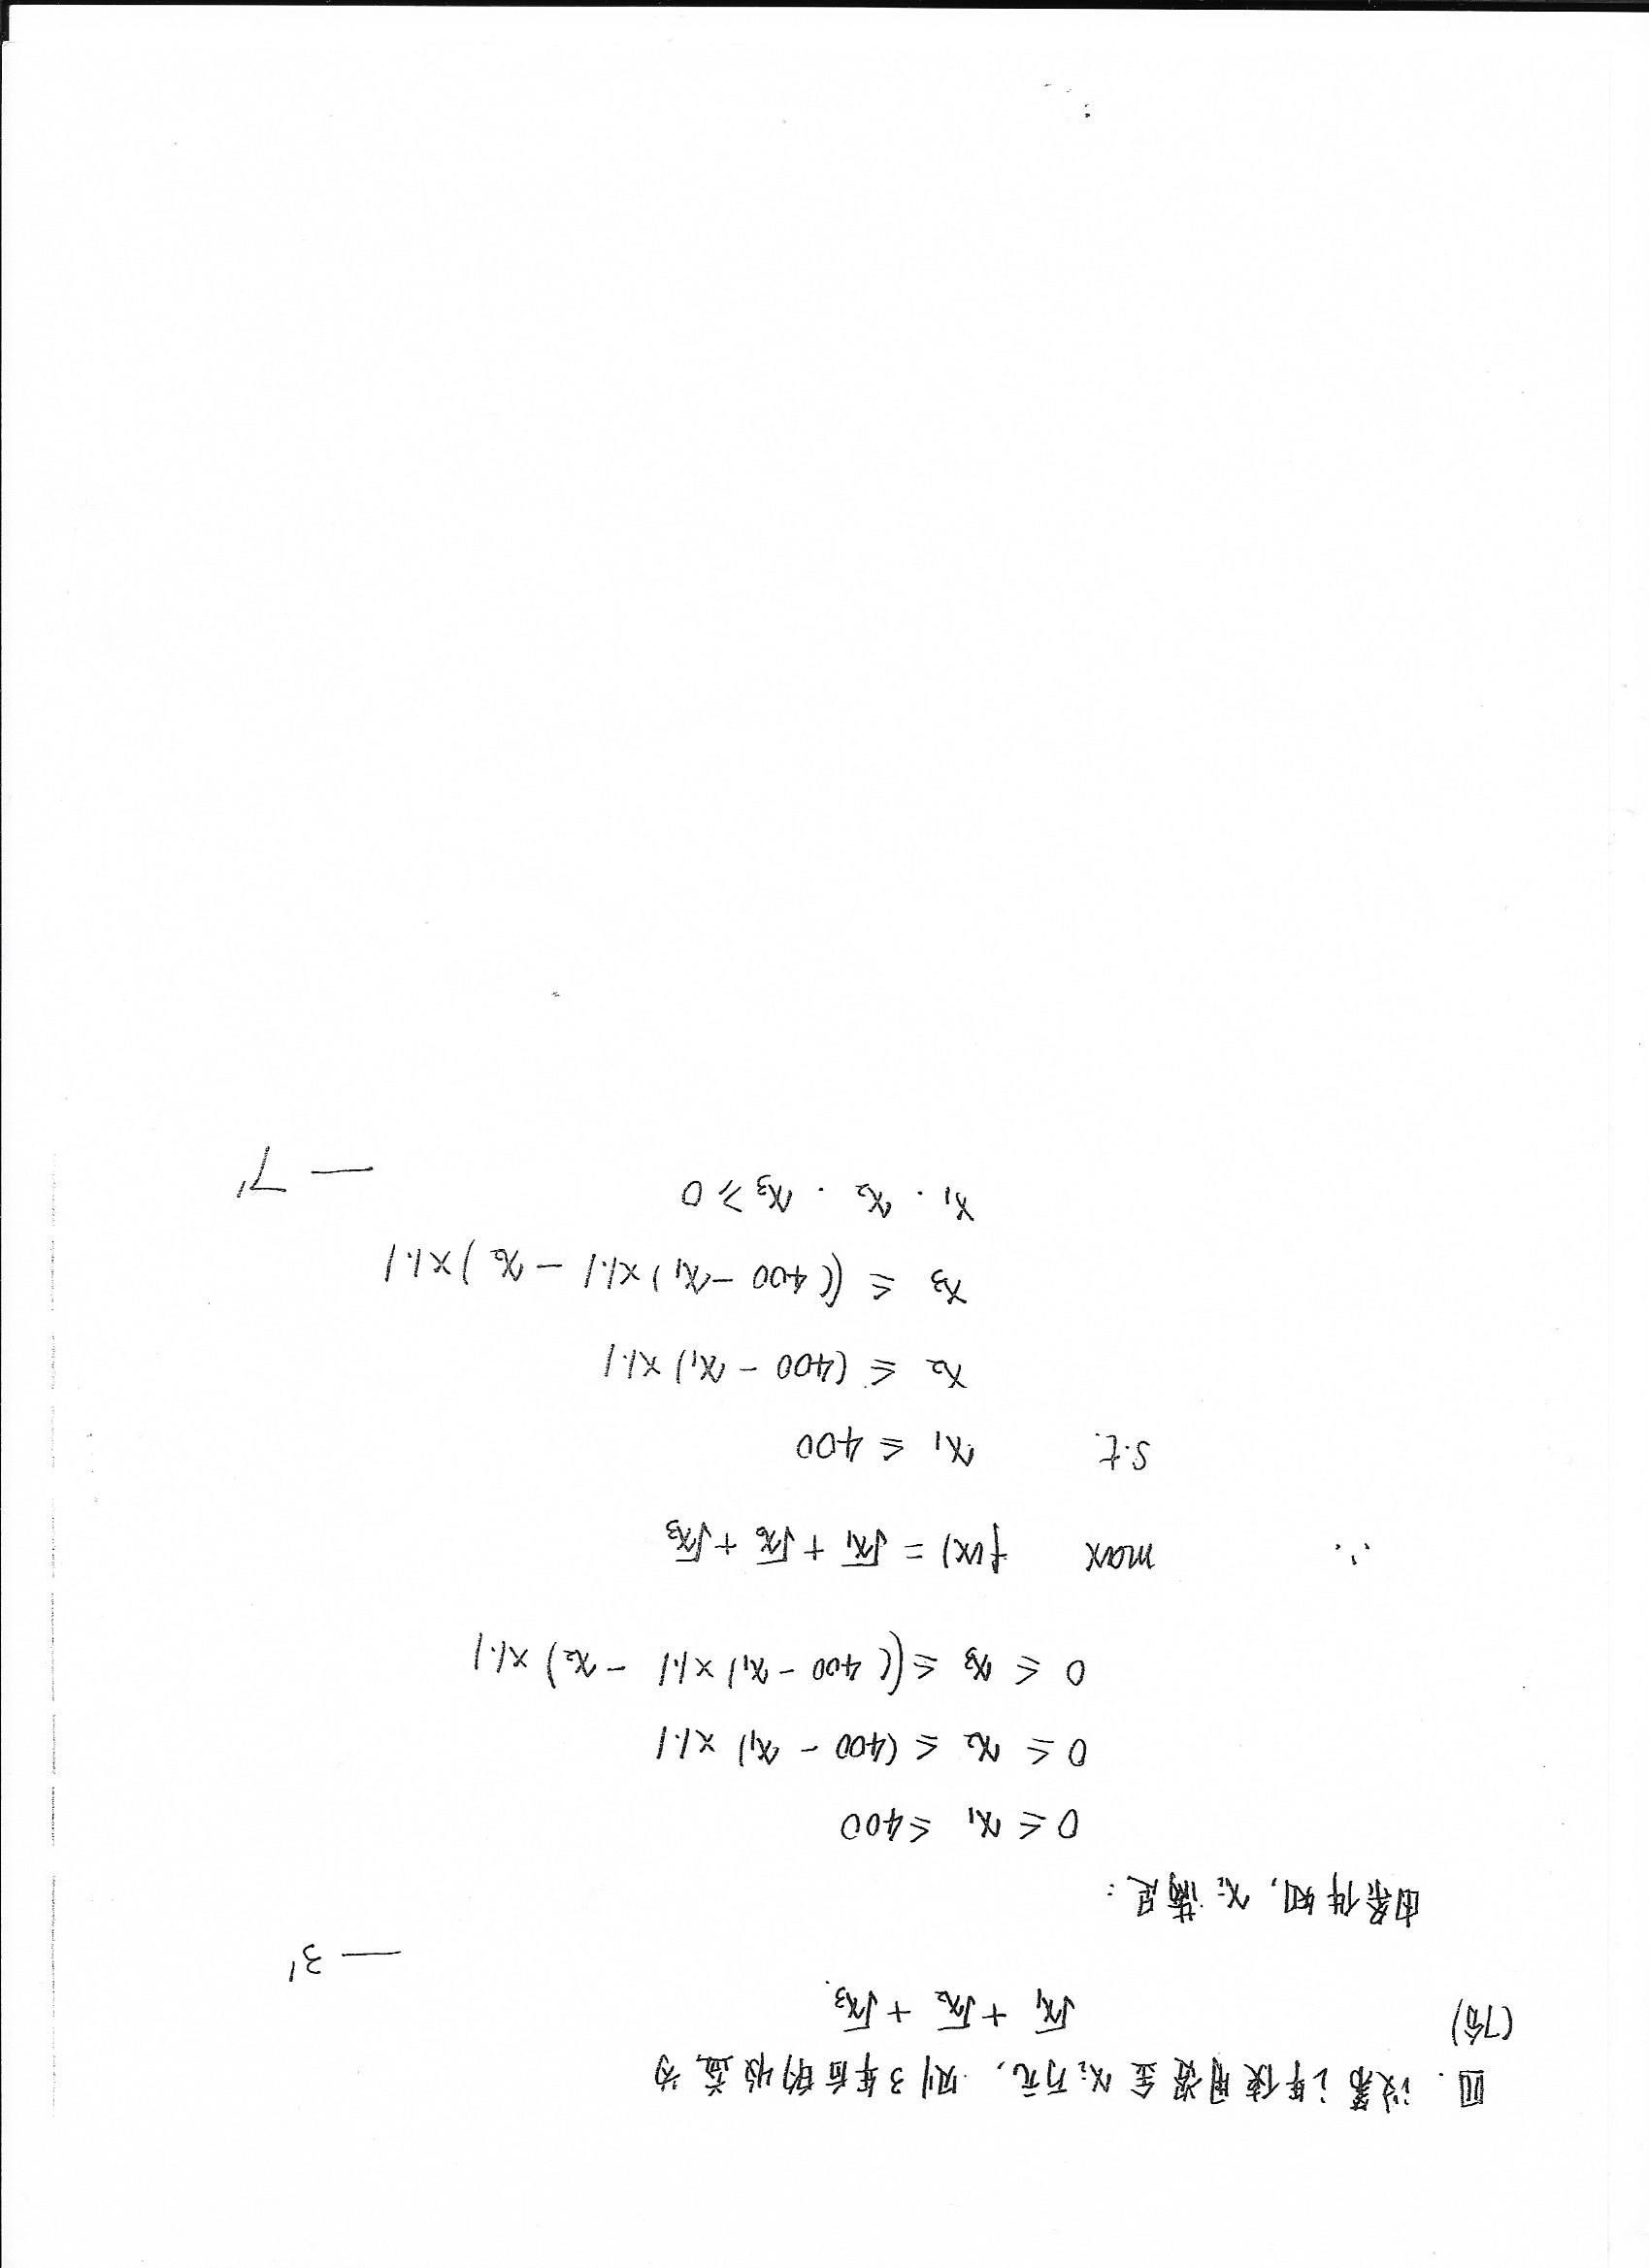 四. 设第i年使用资金xᵢ万元, 则3年后的收益为
(7分) √x₁ + √x₂ + √x₃. — 3'
由条件知, xᵢ满足:
0 ≤ x₁ ≤ 400
0 ≤ x₂ ≤ (400 - x₁) × 1.1
0 ≤ x₃ ≤ ((400 - x₁) × 1.1 - x₂) × 1.1
∴ max f(x) = √x₁ + √x₂ + √x₃
s.t. x₁ ≤ 400
x₂ ≤ (400 - x₁) × 1.1
x₃ ≤ ((400 - x₁) × 1.1 - x₂) × 1.1
x₁ . x₂ . x₃ ≥ 0 — 7'